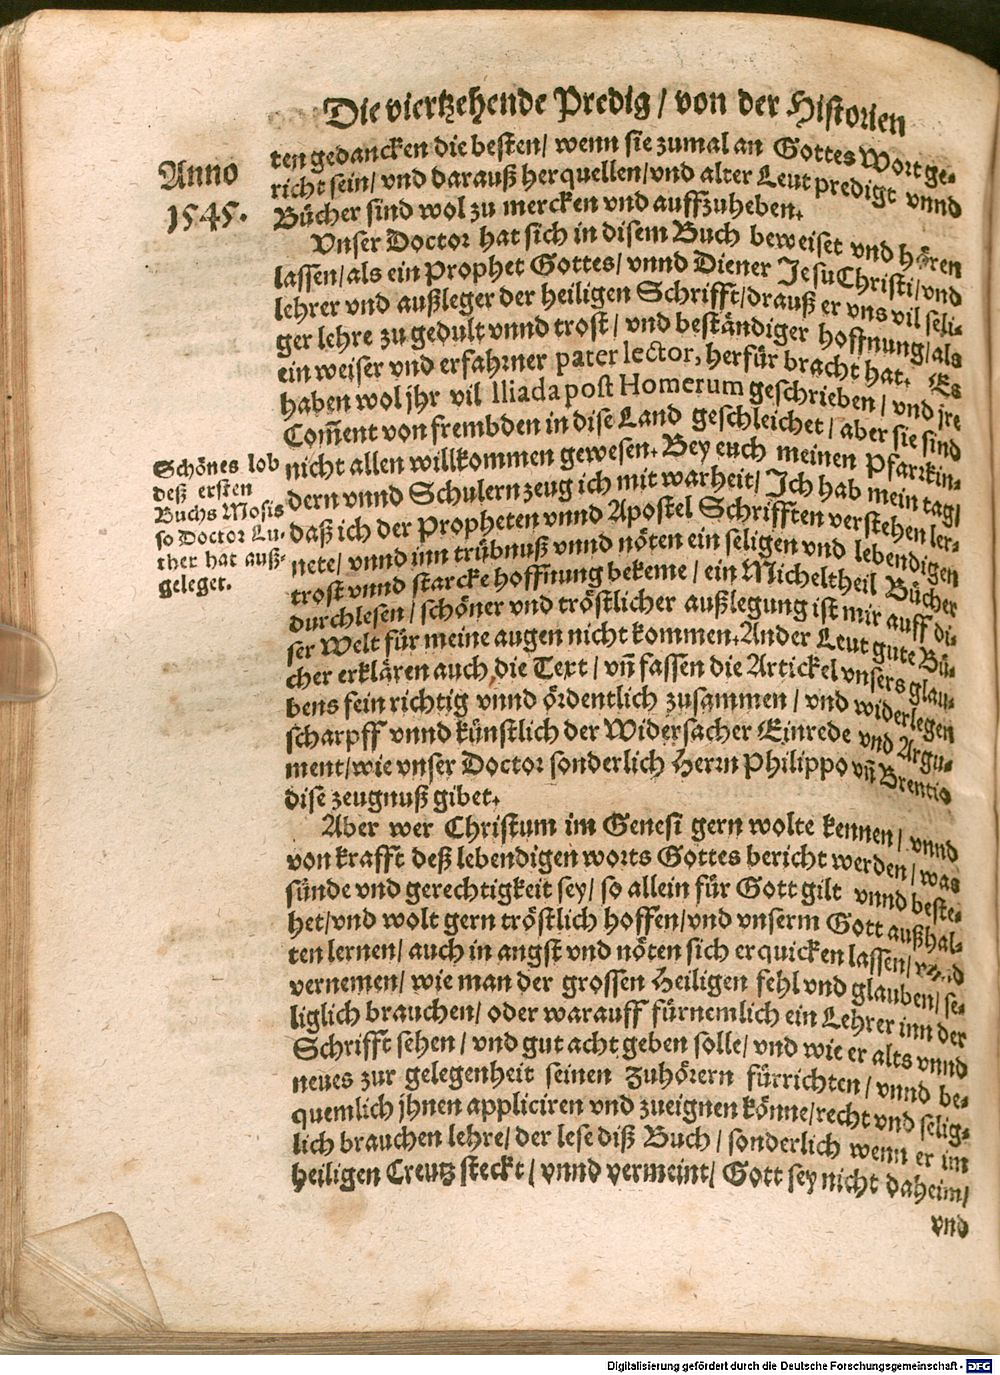 Die viertzehende Predig / von der Historien
Anno
1545.
ten gedancken die besten / wenn sie zumal an Gottes Wort ge-
richt sein / vnd darauß her quellen / vnd alter Leut predigt vnnd
Bücher sind wol zu mercken vnd auffzuheben.
Vnser Doctor hat sich in disem Buch beweiset vnd hören
lassen / als ein Prophet Gottes / vnnd Diener Jesu Christi / vnd
lehrer vnd außleger der heiligen Schrifft / drauß er vns vil seli-
ger lehre zu gedult vnnd trost / vnd beständiger hoffnung / als
ein weiser vnd erfahrner pater lector, herfür bracht hat. Es
haben wol jhr vil Iliada post Homerum geschrieben / vnd jre
Com̃ent von frembden in dise Land geschleichet / aber sie sind
nicht allen willkommen gewesen. Bey euch meinen Pfarrkin-
dern vnnd Schulern zeug ich mit warheit / Ich hab mein tag /
daß ich der Propheten vnnd Apostel Schrifften verstehen ler-
nete / vnnd inn trübnuß vnnd nöten ein seligen vnd lebendigen
trost vnnd starcke hoffnung bekeme / ein Micheltheil Bücher
durchlesen / schöner vnd tröstlicher außlegung ist mir auff di-
ser Welt für meine augen nicht kommen. Ander Leut gute Bü-
cher erklären auch die Text / vñ fassen die Artickel vnsers glau-
bens fein richtig vnnd ördentlich zusammen / vnd widerlegen
scharpff vnnd künstlich der Widersacher Einrede vnd Argu-
ment / wie vnser Doctor sonderlich Herrn Philippo vñ Brentio
dise zeugnuß gibet.
Schönes lob
deß ersten
Buchs Mosis
so Doctor Lu-
ther hat auß-
geleget.
Aber wer Christum im Genesi gern wolte kennen / vnnd
von krafft deß lebendigen worts Gottes bericht werden / was
sünde vnd gerechtigkeit sey / so allein für Gott gilt vnnd beste-
het / vnd wolt gern tröstlich hoffen / vnd vnserm Gott außhal-
ten lernen / auch in angst vnd nöten sich erquicken lassen / vnnd
vernemen / wie man der grossen Heiligen fehl vnd glauben / se-
liglich brauchen / oder warauff fürnemlich ein Lehrer inn der
Schrifft sehen / vnd gut acht geben solle / vnd wie er alts vnnd
neues zur gelegenheit seinen Zuhörern fürrichten / vnnd be-
quemlich jhnen appliciren vnd zueignen könne / recht vnd selig-
lich brauchen lehre / der lese diß Buch / sonderlich wenn er im
heiligen Creutz steckt / vnnd vermeint / Gott sey nicht daheim /
vnd
Digitalisierung gefördert durch die Deutsche Forschungsgemeinschaft - DFG